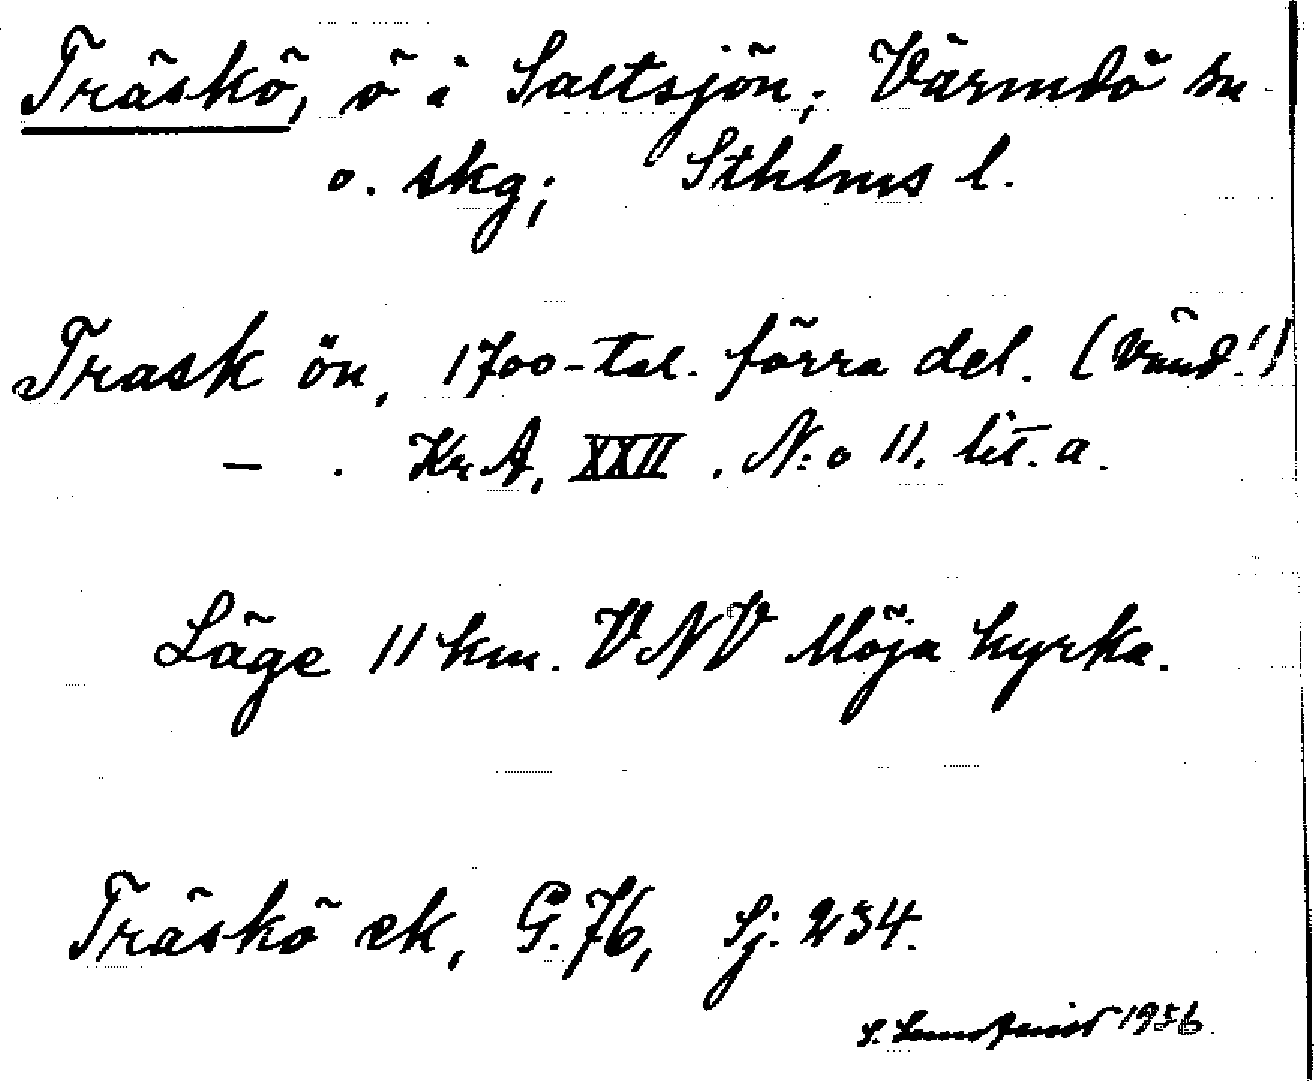 Träskö, ö i Saltsjön, Värmdö sn
o. skg; Sthlms l.
Trask ön, 1700-tal. förra del. (Vänd!)
— . Kr. A, XXII . N:o 11. lit. a.
Läge 11 km. VNV Möja kyrka.
Träskö ek, G. 76, Sj. 234.
S. Lundqvist 1956